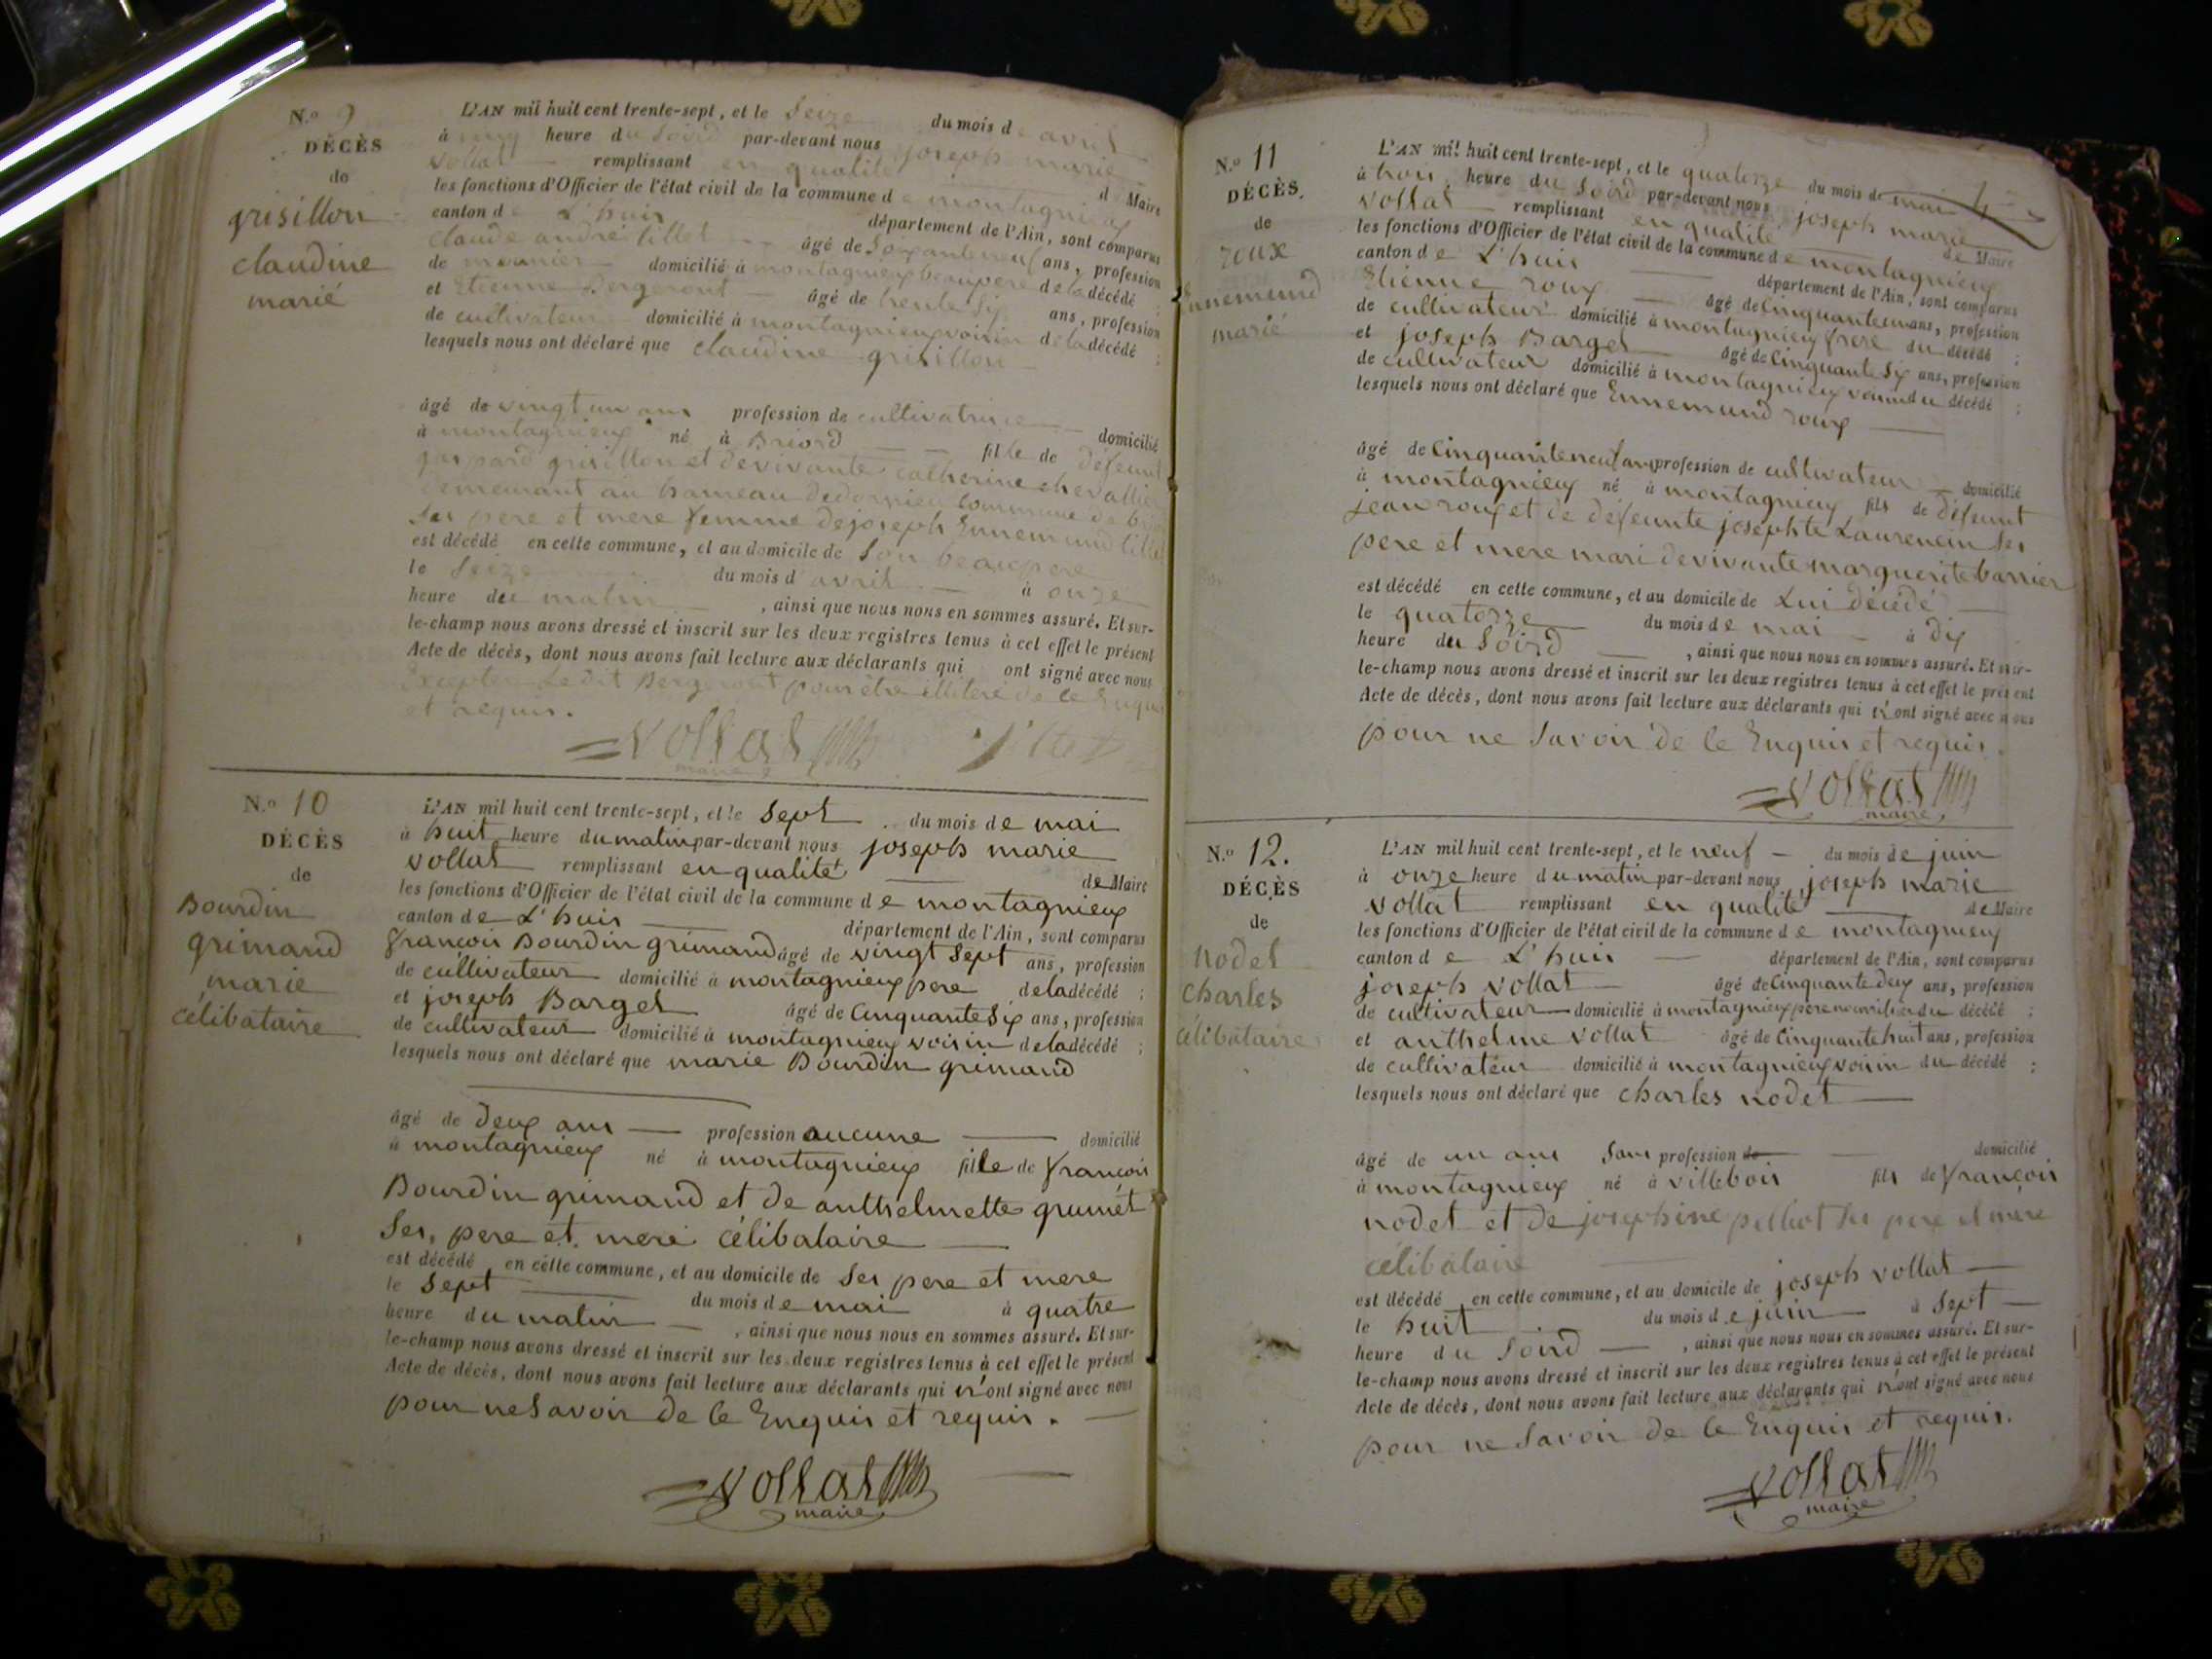 N.o 9
DÉCÈS
de
grisillon
claudine
marié
L'AN mil huit cent trente-sept, et le Seize du mois de avril
à heure du Soird par-devant nous joseph marie
vollat remplissant en qualité de Maire
les fonctions d'Officier de l'état civil de la commune de montagnieu
canton de L'huis département de l'Ain, sont comparus
Claude andré tillet âgé de Soixanteneuf ans, profession
de meunier domicilié à montagnieux beaupere de la décédé ;
et Etienne Bergeront âgé de trente Six ans, profession
de cultivateur domicilié à montagnieux voisin de la décédé ;
lesquels nous ont déclaré que claudine grisillon
âgé de vingt un ans profession de cultivatrice domicilié
à montagnieux né à Briord fille de défeunt
gaspard grisillon et de vivante catherine chevallier
demeurant au hameau de dornieu commune de
Ses pere et mere femme de joseph Ennemund tillet
est décédé en cette commune, et au domicile de Son beaupere
le Seize du mois d'avril à onze
heure du matin, ainsi que nous nous en sommes assuré. Et sur-
le-champ nous avons dressé et inscrit sur les deux registres tenus à cet effet le présent
Acte de décès, dont nous avons fait lecture aux déclarants qui ont signé avec nous
Excepter Le dit Bergeront pour être illiteré de ce Enquis
et requis.
vollat
maire
N.o 10
DÉCÈS
de
Bourdin
grimand
marie
célibataire
L'AN mil huit cent trente-sept, et le Sept du mois de mai
à huit heure du matin par-devant nous joseph marie
vollat remplissant en qualité de Maire
les fonctions d'Officier de l'état civil de la commune de montagnieux
canton de L'huis département de l'Ain, sont comparus
françois Bourdin grimand âgé de vingt Sept ans, profession
de cultivateur domicilié à montagnieux pere de la décédé ;
et joseph Barget âgé de Cinquante Six ans, profession
de cultivateur domicilié à montagnieux voisin de la décédé ;
lesquels nous ont déclaré que marie Bourdin grimand
âgé de deux ans profession aucune domicilié
à montagnieux né à montagnieux fille de françois
Bourdin grimand et de anthelmette grumet
Ses, pere et mere célibataire
est décédé en cette commune, et au domicile de Ses pere et mere
le Sept du mois de mai à quatre
heure du matin, ainsi que nous nous en sommes assuré. Et sur-
le-champ nous avons dressé et inscrit sur les deux registres tenus à cet effet le présent
Acte de décès, dont nous avons fait lecture aux déclarants qui n'ont signé avec nous
pour ne Savoir de ce Enquis et requis.
vollat
maire
N.o 11
DÉCÈS.
de
roux
Ennemund
marié
L'AN mil huit cent trente-sept, et le quatorze du mois de mai
à trois heure du Soird par-devant nous joseph marie
vollat remplissant en qualité de Maire
les fonctions d'Officier de l'état civil de la commune de montagnieux
canton de L'huis département de l'Ain, sont comparus
Etienne roux âgé de Cinquante un ans, profession
de cultivateur domicilié à montagnieux frere du décédé ;
et joseph Barget âgé de Cinquante Six ans, profession
de cultivateur domicilié à montagnieux voisin du décédé ;
lesquels nous ont déclaré que Ennemund roux
âgé de Cinquanteneuf ans profession de cultivateur domicilié
à montagnieux né à montagnieux fils de défeunt
jean roux et de défeunte josephte Laurencin Ses
pere et mere mari de vivante marguerite barrier
est décédé en cette commune, et au domicile de Lui décédé
le quatorze du mois de mai à dix
heure du Soird, ainsi que nous nous en sommes assuré. Et sur-
le-champ nous avons dressé et inscrit sur les deux registres tenus à cet effet le présent
Acte de décès, dont nous avons fait lecture aux déclarants qui n'ont signé avec nous
pour ne Savoir de ce Enquis et requis.
vollat
maire
N.o 12.
DÉCÈS
de
nodet
charles
célibataire
L'AN mil huit cent trente-sept, et le neuf du mois de juin
à onze heure du matin par-devant nous joseph marie
vollat remplissant en qualité de Maire
les fonctions d'Officier de l'état civil de la commune de montagnieux
canton de L'huis département de l'Ain, sont comparus
joseph vollat âgé de Cinquante deux ans, profession
de cultivateur domicilié à montagnieux pere nourricier du décédé ;
et anthelme vollat âgé de Cinquante huit ans, profession
de cultivateur domicilié à montagnieux voisin du décédé ;
lesquels nous ont déclaré que charles nodet
âgé de un ans Sans profession de domicilié
à montagnieux né à villebois fils de françois
nodet et de josephine Ses pere et mere
célibataire
est décédé en cette commune, et au domicile de joseph vollat
le huit du mois de juin à Sept
heure du Soird, ainsi que nous nous en sommes assuré. Et sur-
le-champ nous avons dressé et inscrit sur les deux registres tenus à cet effet le présent
Acte de décès, dont nous avons fait lecture aux déclarants qui n'ont signé avec nous
pour ne Savoir de ce Enquis et requis.
vollat
maire